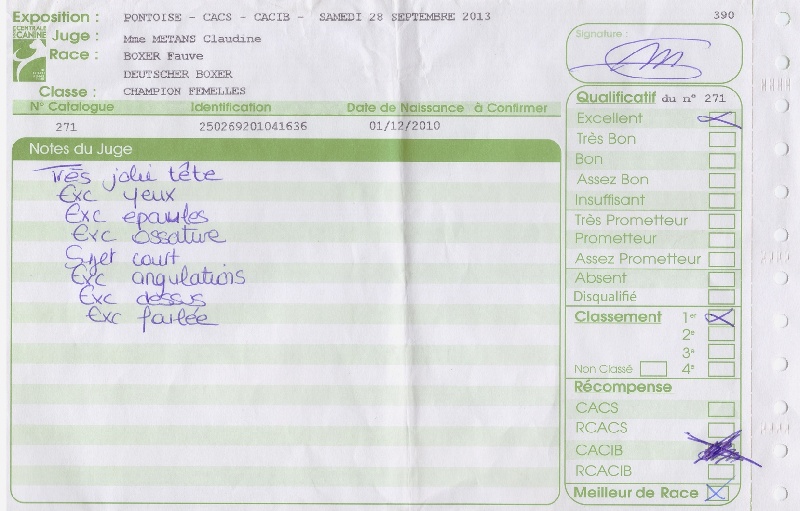 Exposition : PONTOISE - CACS - CACIB - SAMEDI 28 SEPTEMBRE 2013
390
CENTRALE CANINE
Juge : Mme METANS Claudine
Race : BOXER Fauve
DEUTSCHER BOXER
Classe : CHAMPION FEMELLES
Signature :
N° Catalogue Identification Date de Naissance à Confirmer
271 250269201041636 01/12/2010
Notes du Juge
Très jolie tête
Exc yeux
Exc epaules
Exc ossature
Sujet court
Exc angulations
Exc dessus
Exc
Qualificatif du n° 271
Excellent
Très Bon
Bon
Assez Bon
Insuffisant
Très Prometteur
Prometteur
Assez Prometteur
Absent
Disqualifié
Classement 1er
2e
3e
Non Classé 4e
Récompense
CACS
RCACS
CACIB
RCACIB
Meilleur de Race